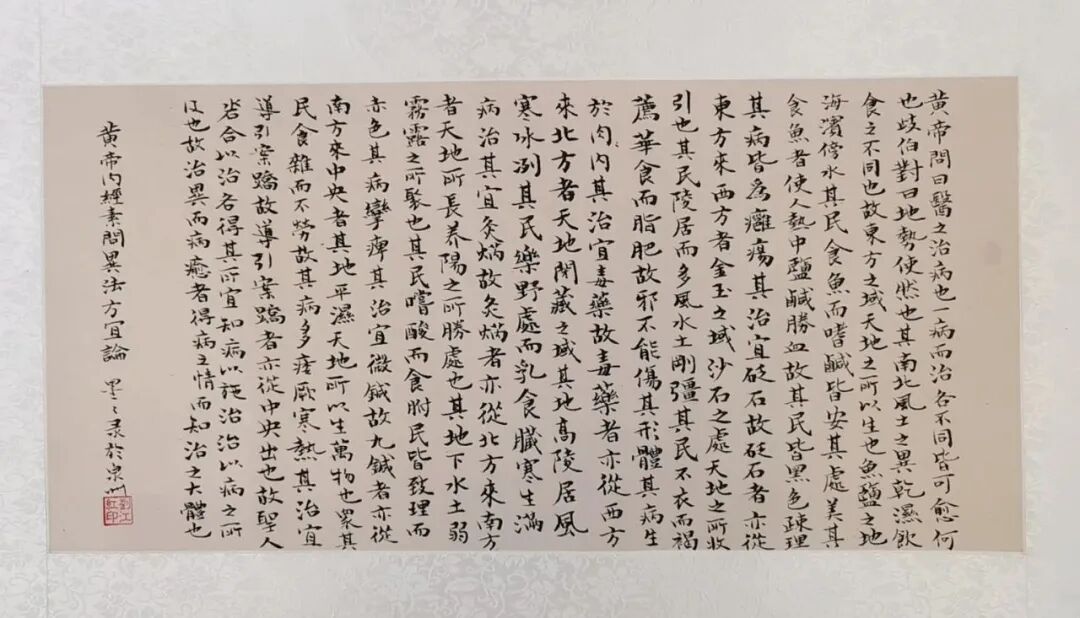 黄帝問曰醫之治病也一病而治各不同皆可愈何
也歧伯對曰地勢使然也其南北風土之異乾濕飲
食之不同也故東方之域天地之所以生也魚鹽之地
海濱傍水其民食魚而嗜鹹皆安其處美其
食魚者使人熱中鹽鹹勝血故其民皆黑色疎理
其病皆為癰瘍其治宜砭石故砭石者亦從
東方來西方者金玉之域沙石之處天地之所收
引也其民陵居而多風水土剛彊其民不衣而褐
薦華食而脂肥故邪不能傷其形體其病生
於肉内其治宜毒藥故毒藥者亦從西方
來北方者天地閉藏之域其地高陵居風
寒冰冽其民樂野處而乳食臟寒生滿
病治其宜灸焫故灸焫者亦從北方來南方
者天地所長养陽之所勝處也其地下水土弱
霧露之所聚也其民嚐酸而食胕民皆致理而
赤色其病攣痺其治宜微鍼故九鍼者亦從
南方來中央者其地平濕天地所以生萬物也衆其
民食雜而不勞故其病多痿厥寒熱其治宜
導引案蹻故導引案蹻者亦從中央出也故聖人
合以治各得其所宜知病以施治治以病之所
也故治異而病癒者得病之情而知治之大體也
黄帝内經素問異法方宜論 墨之录於泉州
紅印